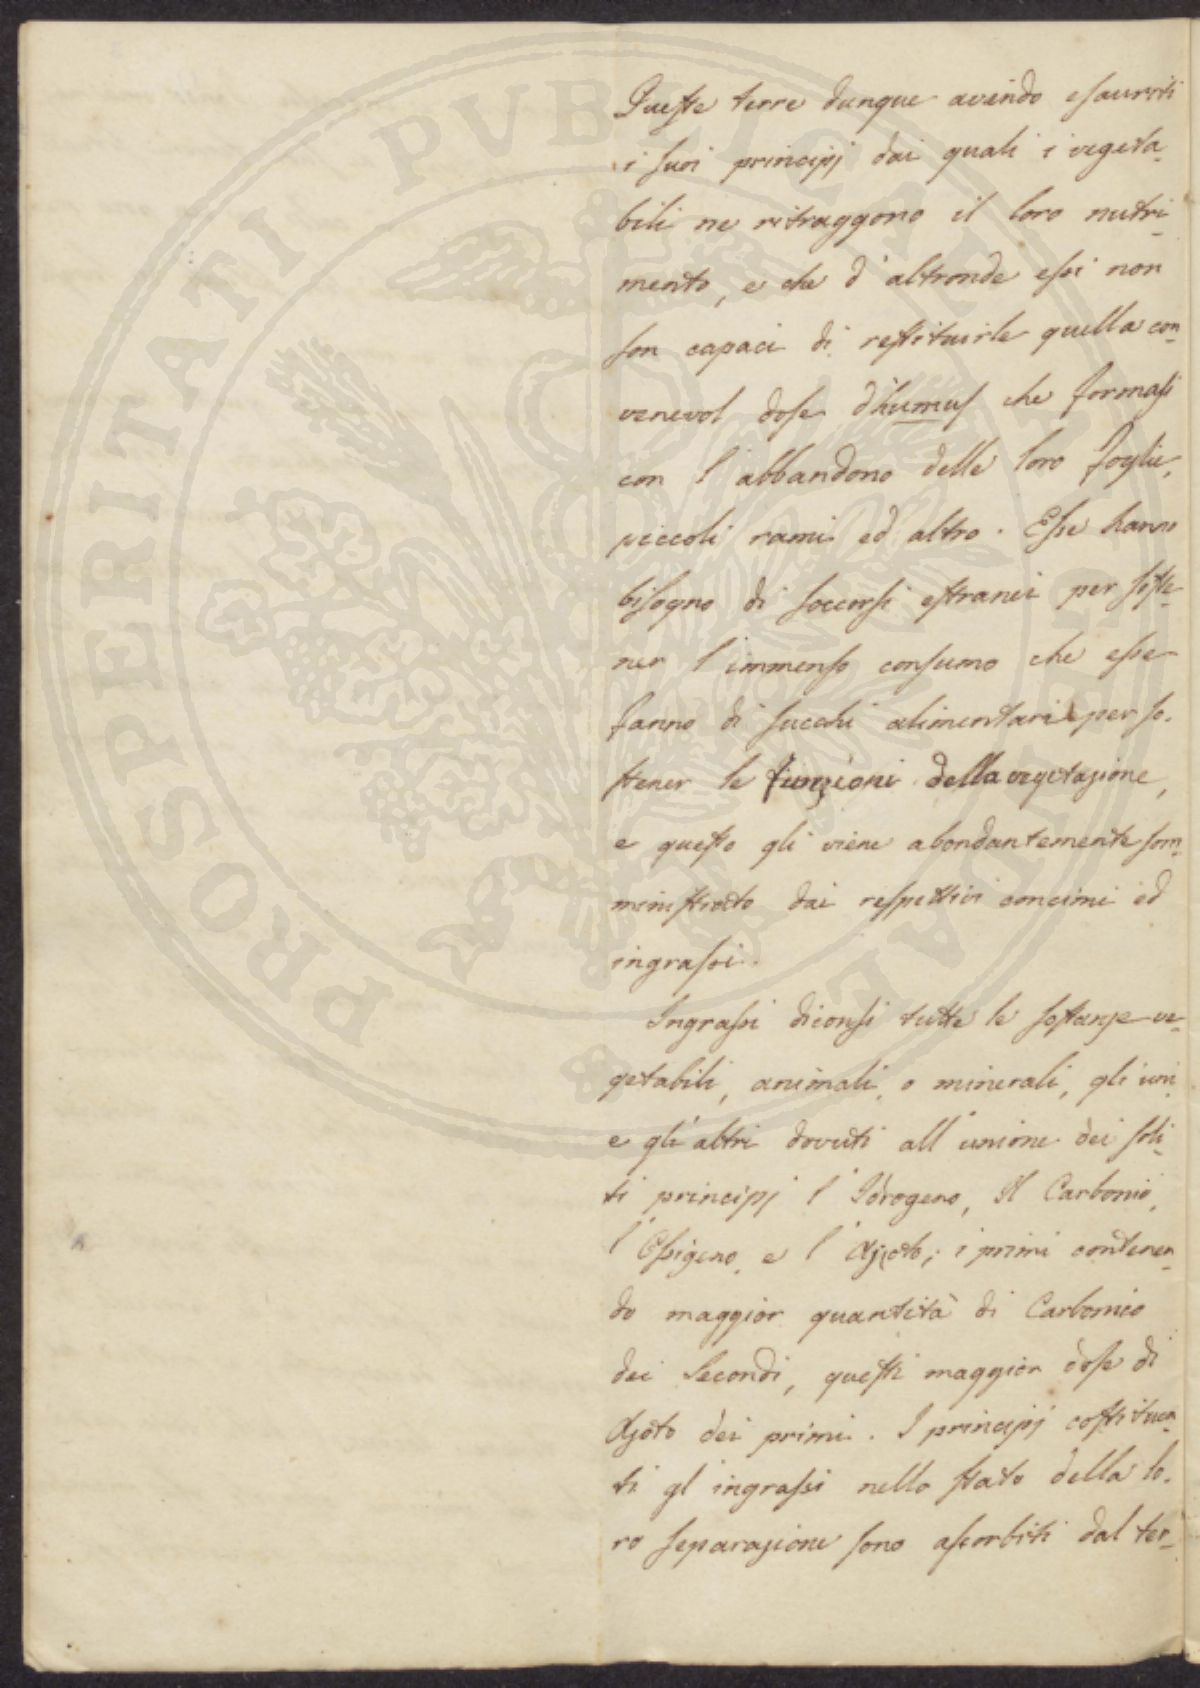 Queste terre dunque avendo esauriti
i suoi principj dai quali i vegeta-
bili ne ritraggono il loro nutri-
mento, e che d'altronde essi non
son capaci di restituirle quella con-
venevol dose d'humus che formasi
con l'abbandono delle loro foglie,
piccoli rami ed altro. Esse hanno
bisogno di soccorsi estranei per soste-
ner l'immenso consumo che esse
fanno di succhi alimentari per so-
stener le funzioni della vegetazione,
e questo gli viene abondantemente som-
ministrato dai respettivi concimi ed
ingrassi.
Ingrassi diconsi tutte le sostanze ve-
getabili, animali, o minerali, gli uni
e gli altri dovuti all'unione dei soli-
ti principj l'Idrogeno, Il Carbonio,
l'Ossigeno, e l'Azoto; i primi contenen-
do maggior quantità di Carbonio
dei Secondi, questi maggior dose di
Azoto dei primi. I principj costituen-
ti gl'ingrassi nello stato della lo-
ro separazione sono assorbiti dal ter-
PROSPERITATI PUBLICAE AUGENDAE